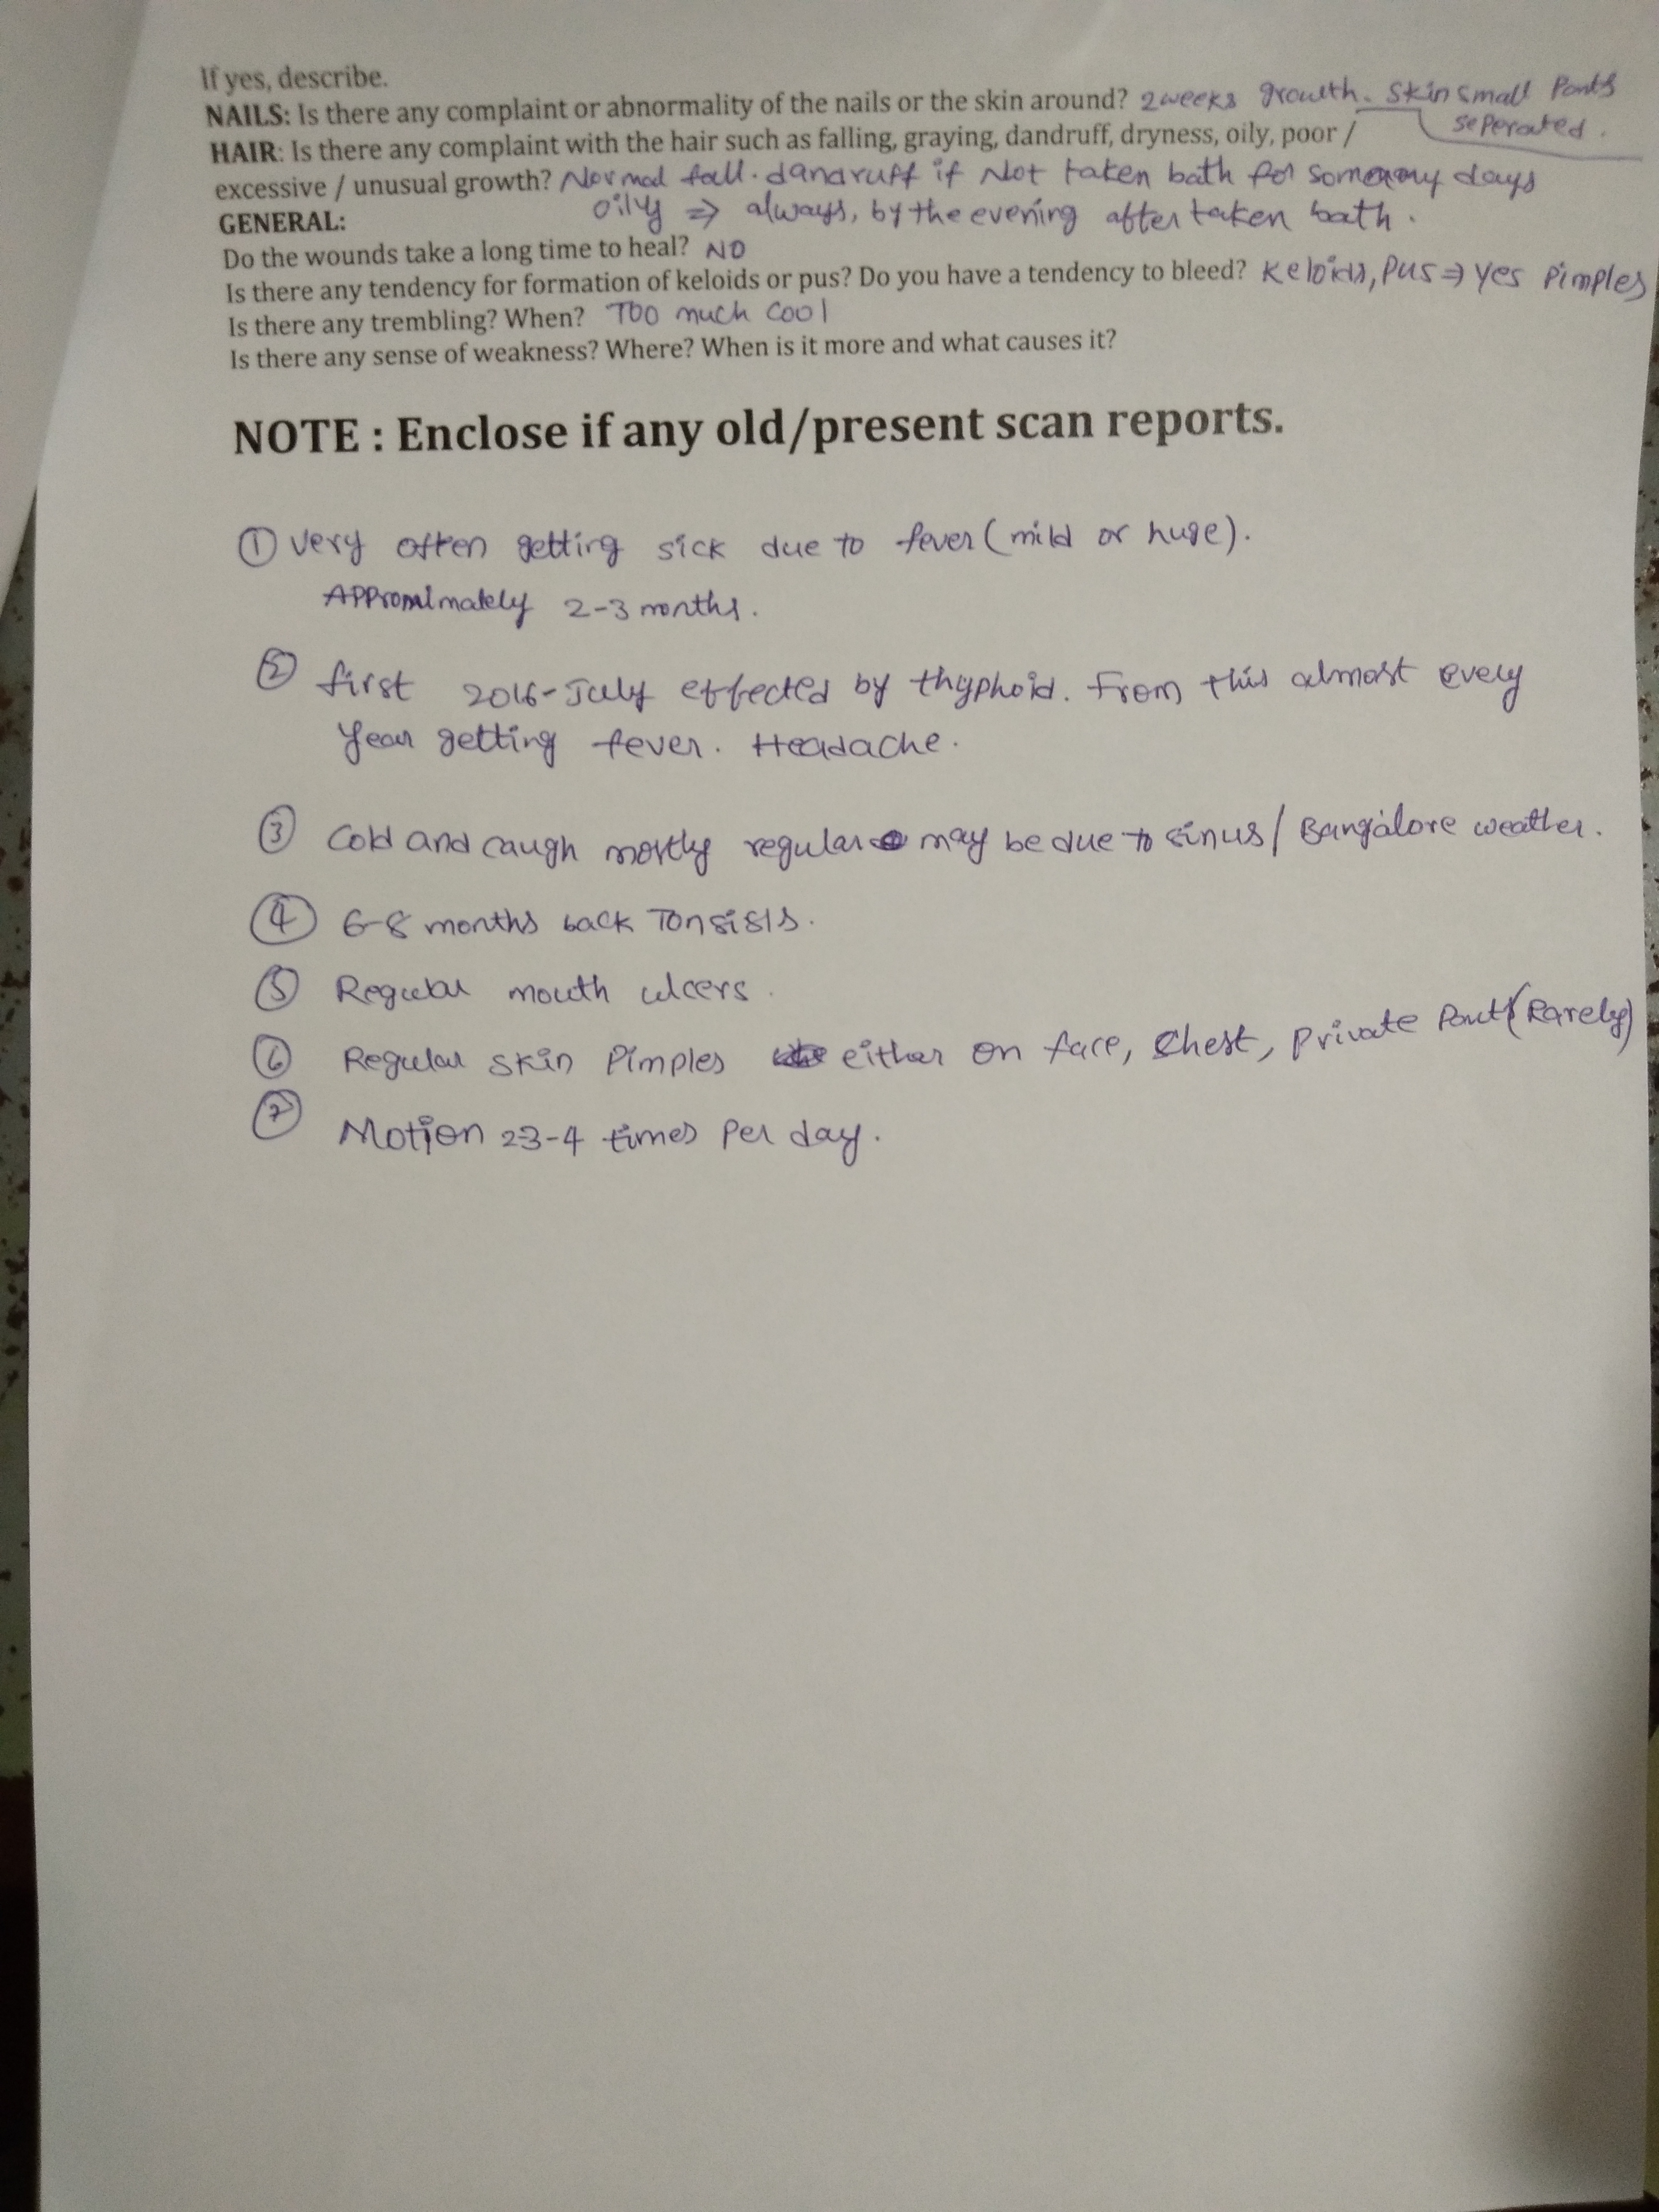 If yes, describe.
NAILS: Is there any complaint or abnormality of the nails or the skin around? 2weeks growth. Skin small Parts
seperated.
HAIR: Is there any complaint with the hair such as falling, graying, dandruff, dryness, oily, poor /
excessive / unusual growth? Normal fall. dandruff if Not taken bath for days
oily ⇒ always, by the evening after taken bath.
GENERAL:
Do the wounds take a long time to heal? NO
Is there any tendency for formation of keloids or pus? Do you have a tendency to bleed? Keloids, Pus ⇒ Yes Pimples
Is there any trembling? When? Too much cool
Is there any sense of weakness? Where? When is it more and what causes it?
NOTE : Enclose if any old/present scan reports.
① Very often getting sick due to fever (mild or huge).
2-3 months.
② first 2016-July effected by thyphoid. From this almost every
Year getting fever. Headache.
③ Cold and caugh mostly regular may be due to sinus / Bangalore weather.
④ 6-8 months back Tonsisls.
⑤ Regular mouth ulcers.
⑥ Regular skin Pimples either on face, Chest, Private Part (Rarely)
⑦ Motion 3-4 times Per day.